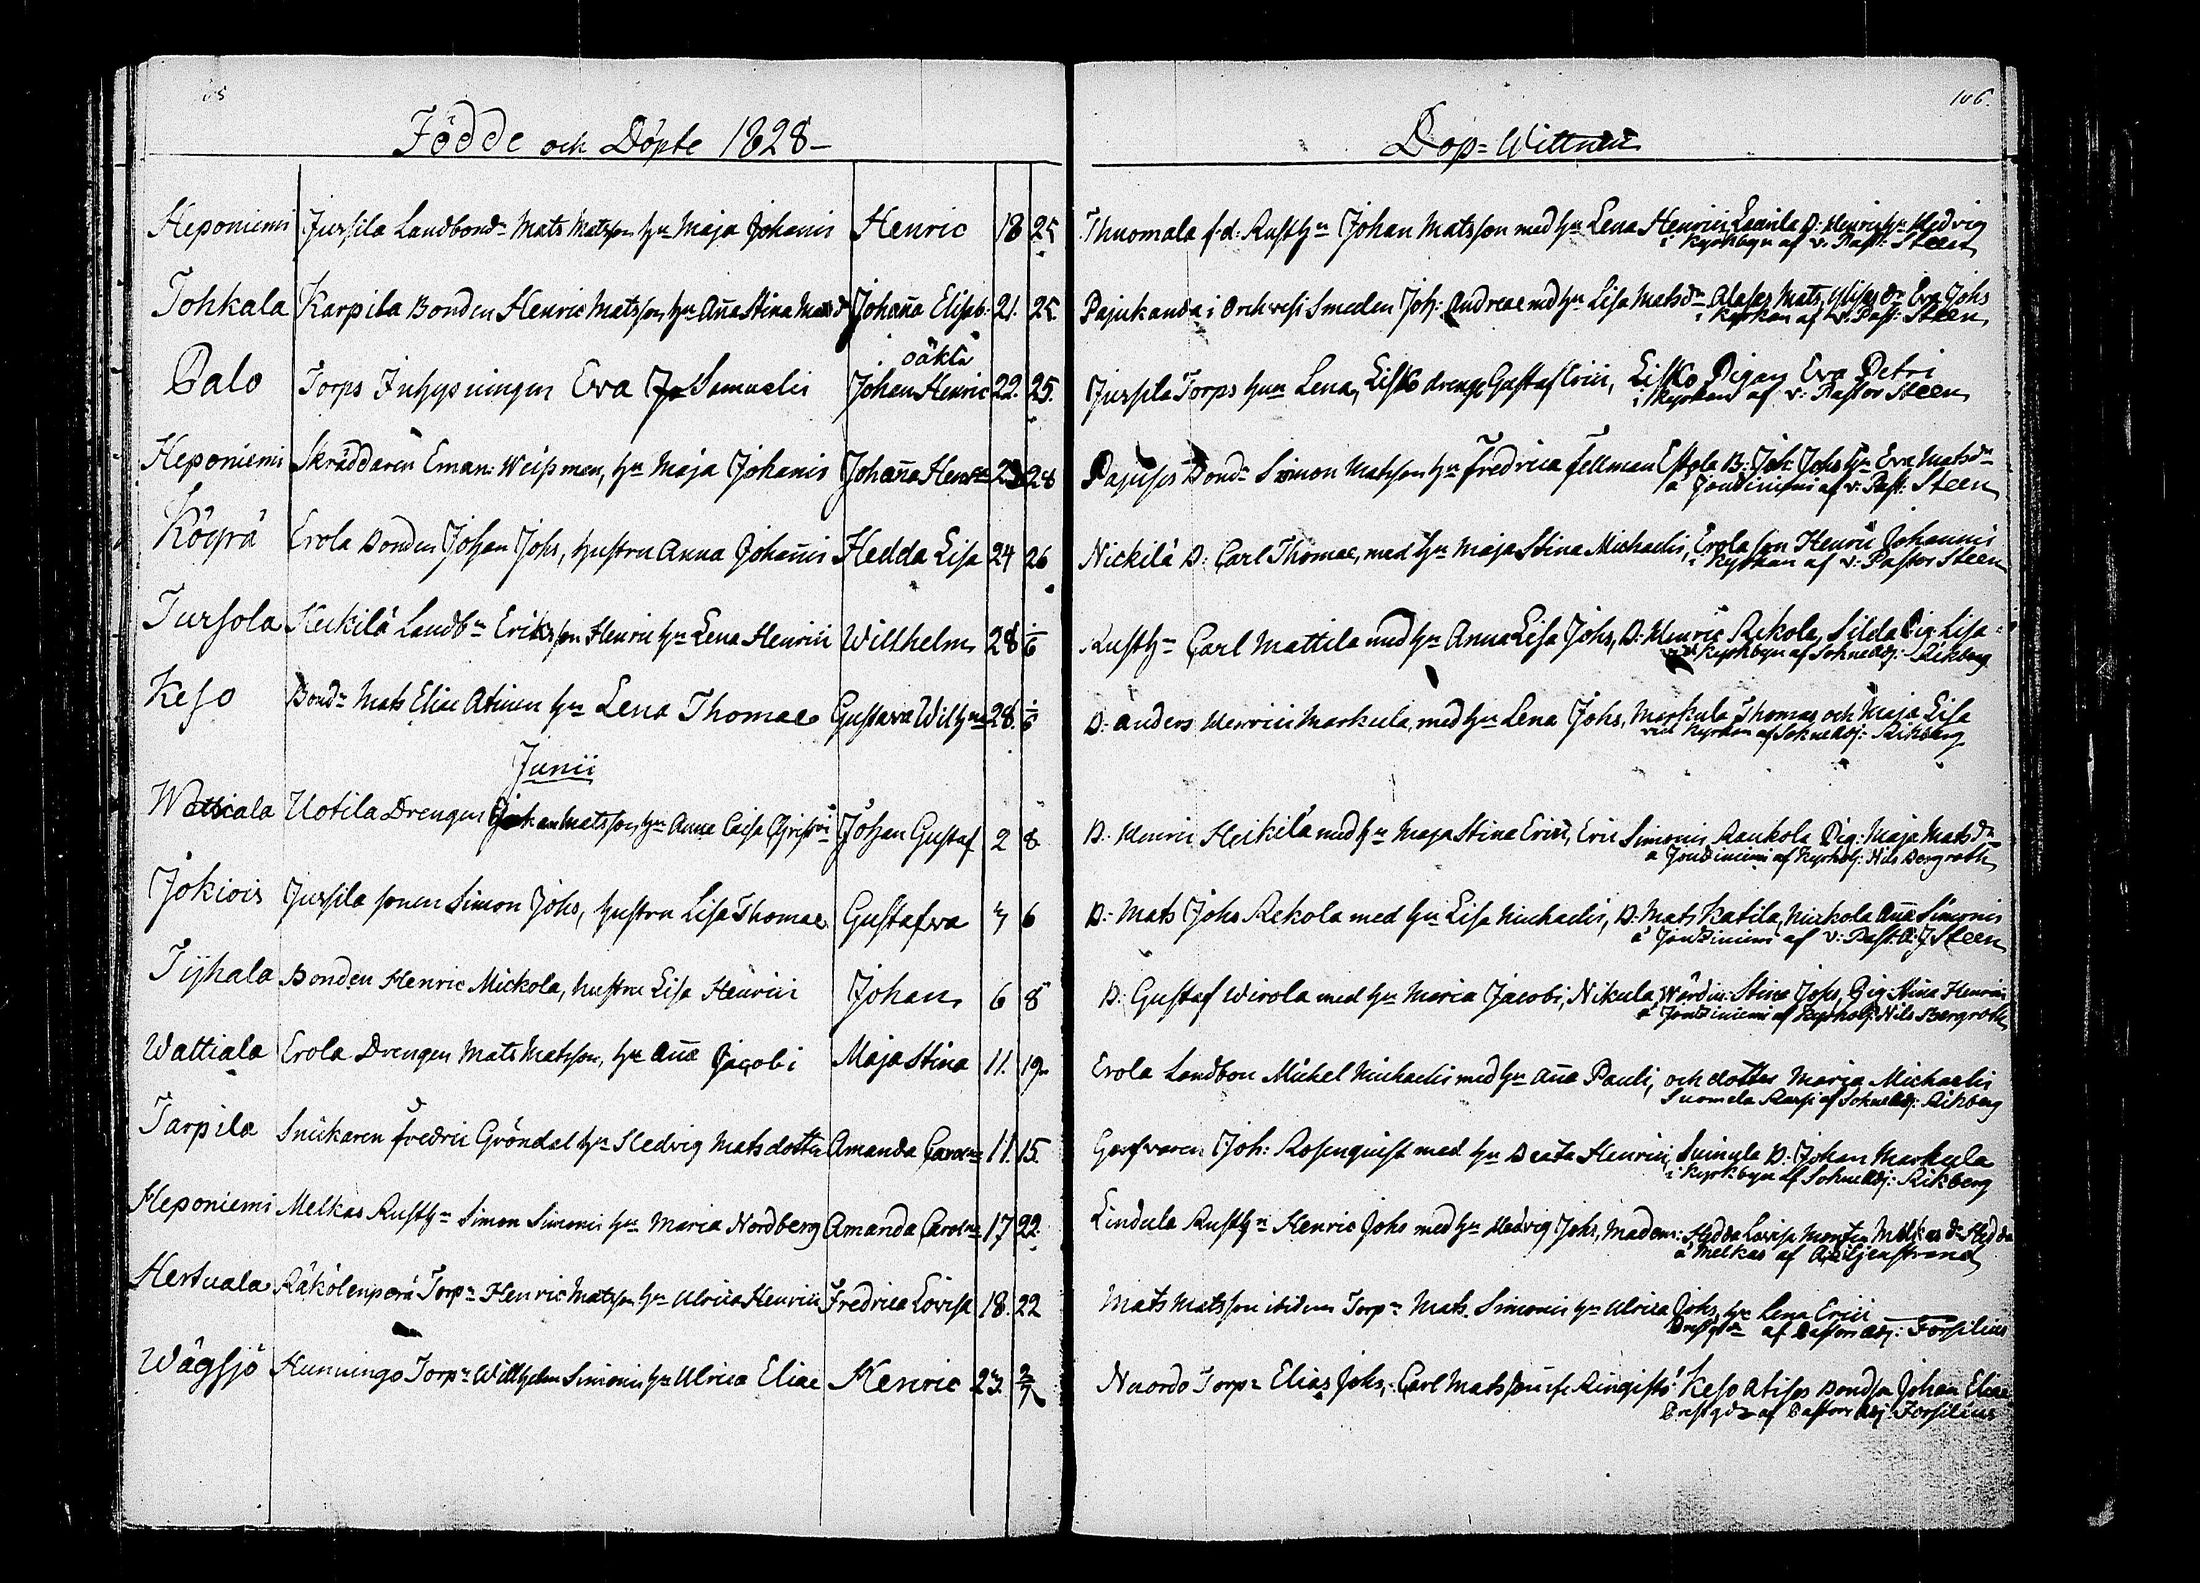 Födde och Döpte 1828
Heponiemi Jussila Landbond: Mats Matsson hu Maja Johanis Henric 18 25
Tohkala Karpila Bonden Henric Matsson, hu Aña Stina Johaña Elisab: 21. 25
oäkta
Palo Torps Inhysningen Eva Samuelis Johan Henric 22. 25.
Heponiemi Skräddaren Eman: Weisman, hu Maja Johanis Johaña 23 28
Köyrä Erola Bonden Johan Johs, hustru Anna Johanis Hedda Lisa 24 26
Tursola Keikilä Landbn Eriksson Henric hu Lena Henrici Willhelm 28 1/6
Keso Bond: Mats Eliae Atinen hu Lena Thomae Gustava Wilh 28. 1/6
Junii
Wattiala Uotila Drengen Johan Matsson, hu Anna Caisa Johan Gustaf 2 8
Jokiois Jussila sonen Simon Johs, hustru Lisa Thomae Gustafva 3 6
Tyhala Bonden Henric Mickola, hustru Lisa Henrici Johan 6 8
Wattiala Erola Drengen Mats Matsson, hu Aña Jacobi Maja Stina 11. 19
Tarpila Snickaren Fredric Gröndal hu Hedvig Matsdotter Amanda 11. 15.
Heponiemi Melkas Rusthn Simon Simonis hu Maria Nordberg Amanda 17 22
Hertuala Räkölenperä Torp: Henric Matsson hu Ulrica Henrici Fredrica Lovisa 18. 22
Wågsjö Hunningo Torp: Willhelm Simonis hu Ulrica Eliae Henric 23. 2/7
106.
Dop-Wittnen
Thuomala f.d. Rusthn Johan Matsson med hu Lena Henrici, B: Henric hu Hedvig
i kyrkbyn af v. Past: Steen
Pajukanda i Smeden Joh: Andreae md hu Lisa Matsdr Mats, Eva Johs
i kyrkan af v. Past: Steen
Jussila Torps hun Lena, Eskko drengn Gustaf Erici, Eskko Pigan Eva Petri
i kyrkan af v. Pastor Steen
Bond: Simon Matsson hu Fredrica Fellman B: Joh: Johs hu Eva Matsdr
å Joudiniemi af v: Past: Steen
Nickilä B: Carl Thomae, med hu Maja Stina Michaelis, Erola son Henric Johannis
i kyrkan af v: Pastor Steen
Rusthn Carl Mattila med hu Anna Lisa Johs, B: Henric Rekola, Pig Lisa
vid kyrkbyn af Sokneadj: Rikberg
B: Anders Henrici Markula, med hu Lena Johs, Markula Thomas och Maja Lisa
vid kyrkan af Sokneadj: Rikberg
B: Henric Heikilä med hu Maja Stina Erici, Eric Simonis, Raukola Pig: Maja Matsdr
å Joudiniemi af Nils Bergroth
B: Mats Johs Rekola med hu Lisa Michaelis, B: Mats Katila, Aña Simonis
å Joudiniemi af v: Past: A: J Steen
B: Gustaf Wirola med hu Maria Jacobi, Nikula Stina Johs, Pig Stina Henrici
å Joudiniemi af Nils Bergroth
Erola Landbon Mickel Michaelis med hu Aña Pauli, och dotter Maria Michaelis
af Sokneadj: Rikberg
Garfvaren Joh: Rosenquist med hu Beata Henrici, B: Johan Markula
i kyrkbyn af Sokneadj: Rikberg
Lindula Rusthn Henric Johs med hu Hedvig Johs, Hedda Lovisa Melkas dr Hedda
å Melkas af
Mats Matsson ibidem Torp: Mats Simonis hu Ulrica Johs, hu Lena Erici
af Pastors Adj: Forsilius
Torp: Elias Johs, Carl Matsson Keso Bondson Johan Eliae
af Pastors Adj: Forsilius